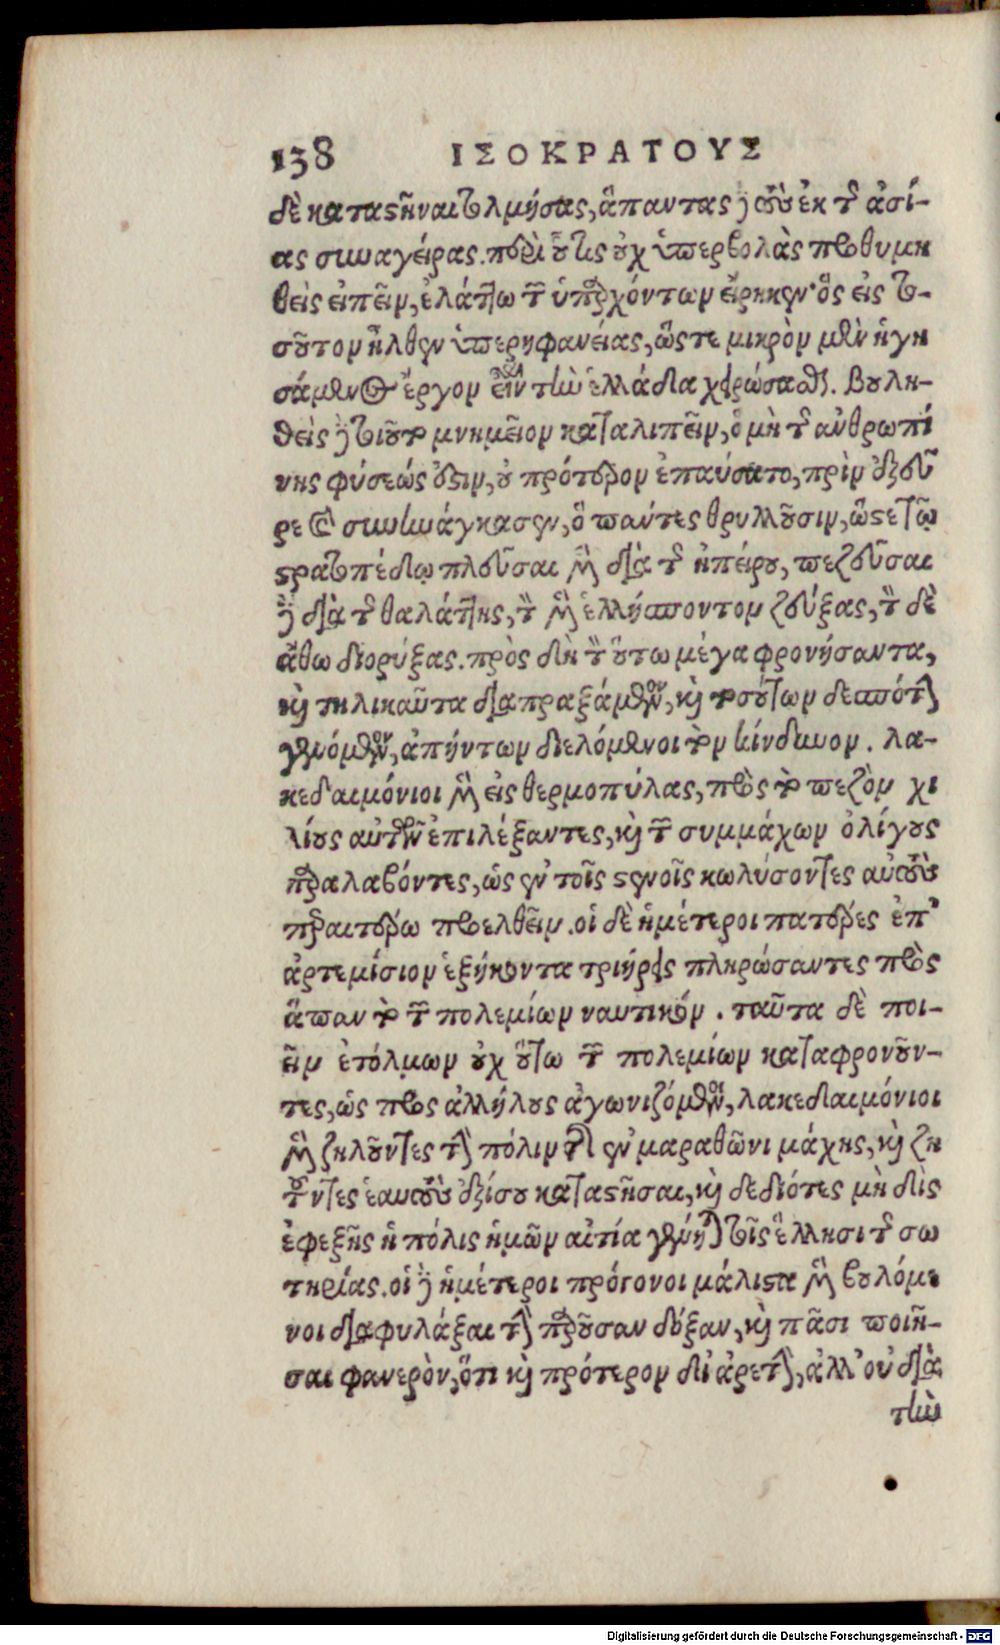 138 ΙΣΟΚΡΑΤΟΥΣ
δὲ καταστῆναι τολμήσας, ἅπαντας δὲ τοὺς ἐκ τῆς ἀσί-
ας συναγείρας. περὶ οὗ τίς οὐχ ὑπερβολὰς προθυμη
θεὶς εἰπεῖν, ἐλάττω τῶν ὑπαρχόντων εἴρηκεν· ὃς εἰς το-
σοῦτον ἦλθεν ὑπερηφανείας, ὥστε μικρὸν μὲν ἡγη
σάμενος ἔργον εἶναι τὴν ἑλλάδα χειρώσασθαι. βουλη-
θεὶς δὲ τοιοῦτο μνημεῖον καταλιπεῖν, ὃ μὴ τῆς ἀνθρωπί
νης φύσεώς ἐστιν, οὐ πρότερον ἐπαύσατο, πρὶν ἐξεῦ
ρε καὶ συνηνάγκασεν, ὃ πάντες θρυλλοῦσιν, ὥστε τῷ
στρατοπέδῳ πλεῦσαι μὲν διὰ τῆς ἠπείρου, πεζεῦσαι
δὲ διὰ τῆς θαλάττης, τὸν μὲν ἑλλήσποντον ζεύξας, τὸν δὲ
ἄθω διορύξας. πρὸς δὴ τὸν οὕτω μέγα φρονήσαντα,
καὶ τηλικαῦτα διαπραξάμενον, καὶ τοσούτων δεσπότην
γενόμενον, ἀπήντων διελόμενοι τὸν κίνδυνον. λα-
κεδαιμόνιοι μὲν εἰς θερμοπύλας, πρὸς τὸ πεζὸν χι
λίους αὑτῶν ἐπιλέξαντες, καὶ τῶν συμμάχων ὀλίγους
παραλαβόντες, ὡς ἐν τοῖς στενοῖς κωλύσοντες αὐτοὺς
περαιτέρω προελθεῖν. οἱ δὲ ἡμέτεροι πατέρες ἐπ'
ἀρτεμίσιον ἑξήκοντα τριήρεις πληρώσαντες πρὸς
ἅπαν τὸ τῶν πολεμίων ναυτικόν. ταῦτα δὲ ποι-
εῖν ἐτόλμων οὐχ οὕτω τῶν πολεμίων καταφρονοῦν-
τες, ὡς πρὸς ἀλλήλους ἀγωνιζόμενοι, λακεδαιμόνιοι
μὲν ζηλοῦντες τὴν πόλιν τῆς ἐν μαραθῶνι μάχης, καὶ ζη
τοῦντες ἑαυτοὺς ἐξίσου καταστῆσαι, καὶ δεδιότες μὴ δὶς
ἐφεξῆς ἡ πόλις ἡμῶν αἰτία γένηται τοῖς ἕλλησι τῆς σω
τηρίας. οἱ δὲ ἡμέτεροι πρόγονοι μάλιστα μὲν βουλόμε
νοι διαφυλάξαι τὴν παροῦσαν δόξαν, καὶ πᾶσι ποιῆ-
σαι φανερὸν, ὅτι καὶ πρότερον δι' ἀρετὴν, ἀλλ' οὐ διὰ
τὴν
Digitalisierung gefördert durch die Deutsche Forschungsgemeinschaft - DFG